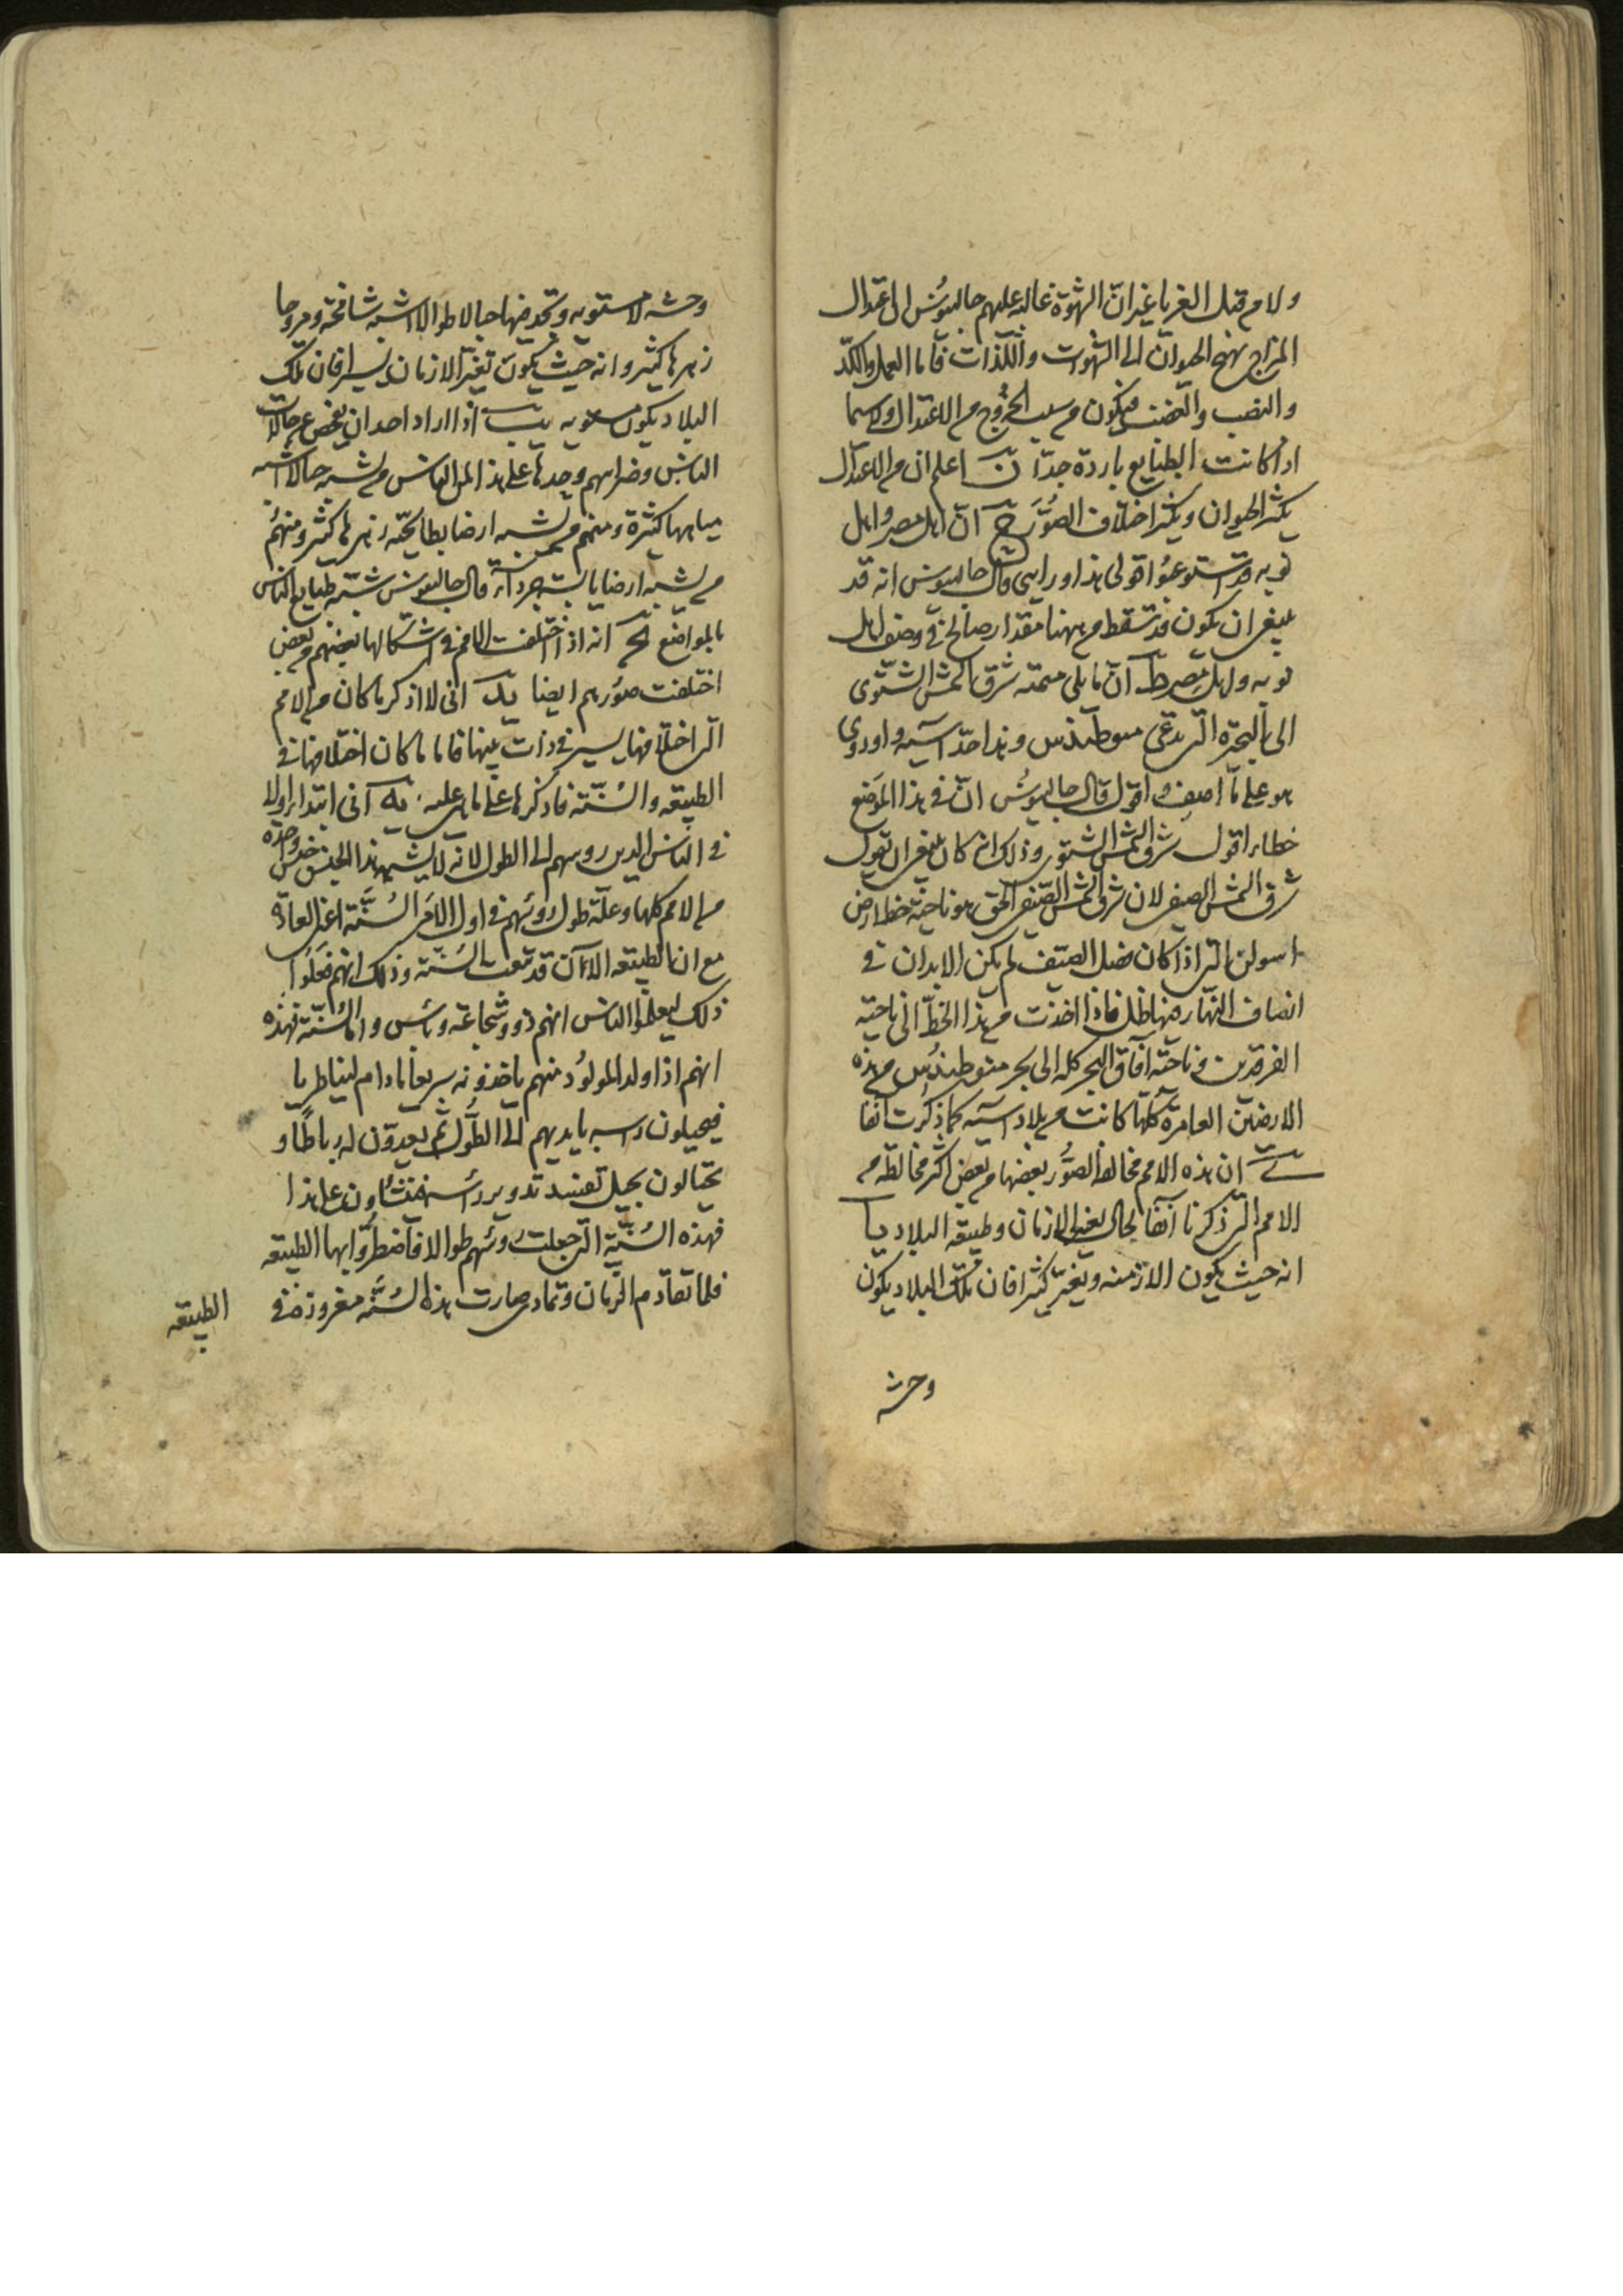 ولا من قبل الغربا غير انّ الشهوة غالبه عليهم جالينوُس ان اعتدال
المزاج يهيج الحيوان الى الشهوات واللّذات فاما العمل والكدّ
والنصب والغضب فيكون من سبب الخرُوج من الاعتدال ولا سيما
اذا كانت الطبايع باردة جدّا ن اعلم ان من الاعتدال
يكثر الحيوان ويكثر اختلاف الصوُّرَ ح انّ اهل مصر واهل
نوبه قد استوعبوُا قولى هذا ورايى قال جالينوس انه قد
ينبغى ان يكون قد سقط من ههنا مقدار صالح فى وصف اهل
نوبه واهل مصر ط انّ ما يلى ميمنه شرق الشمس الشتّوى
الى البحيرة التى تدعى منوطيذس وهذا حدّ آسيه واوروى
هو على ما اصف واقول قال جالينوُس انّ فى هذا الموَضع
خطاء اقول شرق الشمس الشتوى وذلك انه كان ينبغى ان يقول
شرق الشمس الصيفى لان شرق الشمس الصيفى الحق هو ناحية خط ارض
اسوان التى اذا كان فصل الصّيف لم يكن للابدان فى
انصاف النهار فيها ظل فاذا اخذت من هذا الخطّ الى ناحيته
الفرقدين وناحيّه آفاق البحر كله الى بحر منوطيذُس من هذه
الارضين العامرة كلهّا كانت من بلاد آسيه كما ذكرت آنفا
ى ان هذه الامم مخالطة الصوُّر بعضها من بعض اكثر مخالطه من
الامم التى ذكرنا آنفا لحال تغيير الازمان وطبيعه البلاد يا
انه حيث يكون الازمنه وتغيّر كثيرا فان تلك البلاد يكون
وحشه
وحشه لا مستويه وتجد فيها جبالا طوالا اشبه شامخة ومروجا
زهرها كثير وانه حيث يكون تغيّر الازمان يسيرا فان تلك
البلاد يكون مستويه يب اذا اراد احد ان يفحص عن حالات
الناس وصورهم وجدها على هذا المن الناس من يشبه جبالا اشبه
مياهها كثيرة ومنهم من يشبه ارضا بطايحيّه زهرها كثير ومنهُم
من يشبه ارضا يابسة جردآء قال جالينوس شبّه طبايع الناس
بالمواضع يج انه اذا اختلفت الامم فى اشكالها بعضهم من بعض
اختلفت صوُرهم ايضا يد انى لا اذكر ما كان من الامم
التى اختلافها يسير فى ذات بينها فاما ما كان اختلافها فى
الطبيعه والسُنّة فاذكرها على ما هى عليه يه انى ابتدا اولا
فى الناس الذين روسهم الى الطول لانه لا يشبه هذا الجنس جنس واحده
من الامم كلها وعلّة طول روُسهم فى اول الامر السُنَّة اعنى العادة
مع ان الطبيعه الاآن قد تبعت السُنّة وذلك انهم فعَلوُا
ذلك ليعلموا الناس انهم ذوو شجاعة وبأس واما السُنّة فهذه
انهم اذا ولد المولوُد منهم ياخذونه سريعا ما دام لينا طريا
فيحيلون راسه بايديهم الى الطوُّل ثم يعدوّن له رباطًا و
يحتالون بحيل تفسد تدوير راسه فينشاون على هذا
فهذه السُنّة التى جعلت روُسهم طوالا فاضطرّوا بها الطبيعه
فلما تقادم الزمان وتمادى صارت هذه السُنّة مغروزة فى
الطبيعه